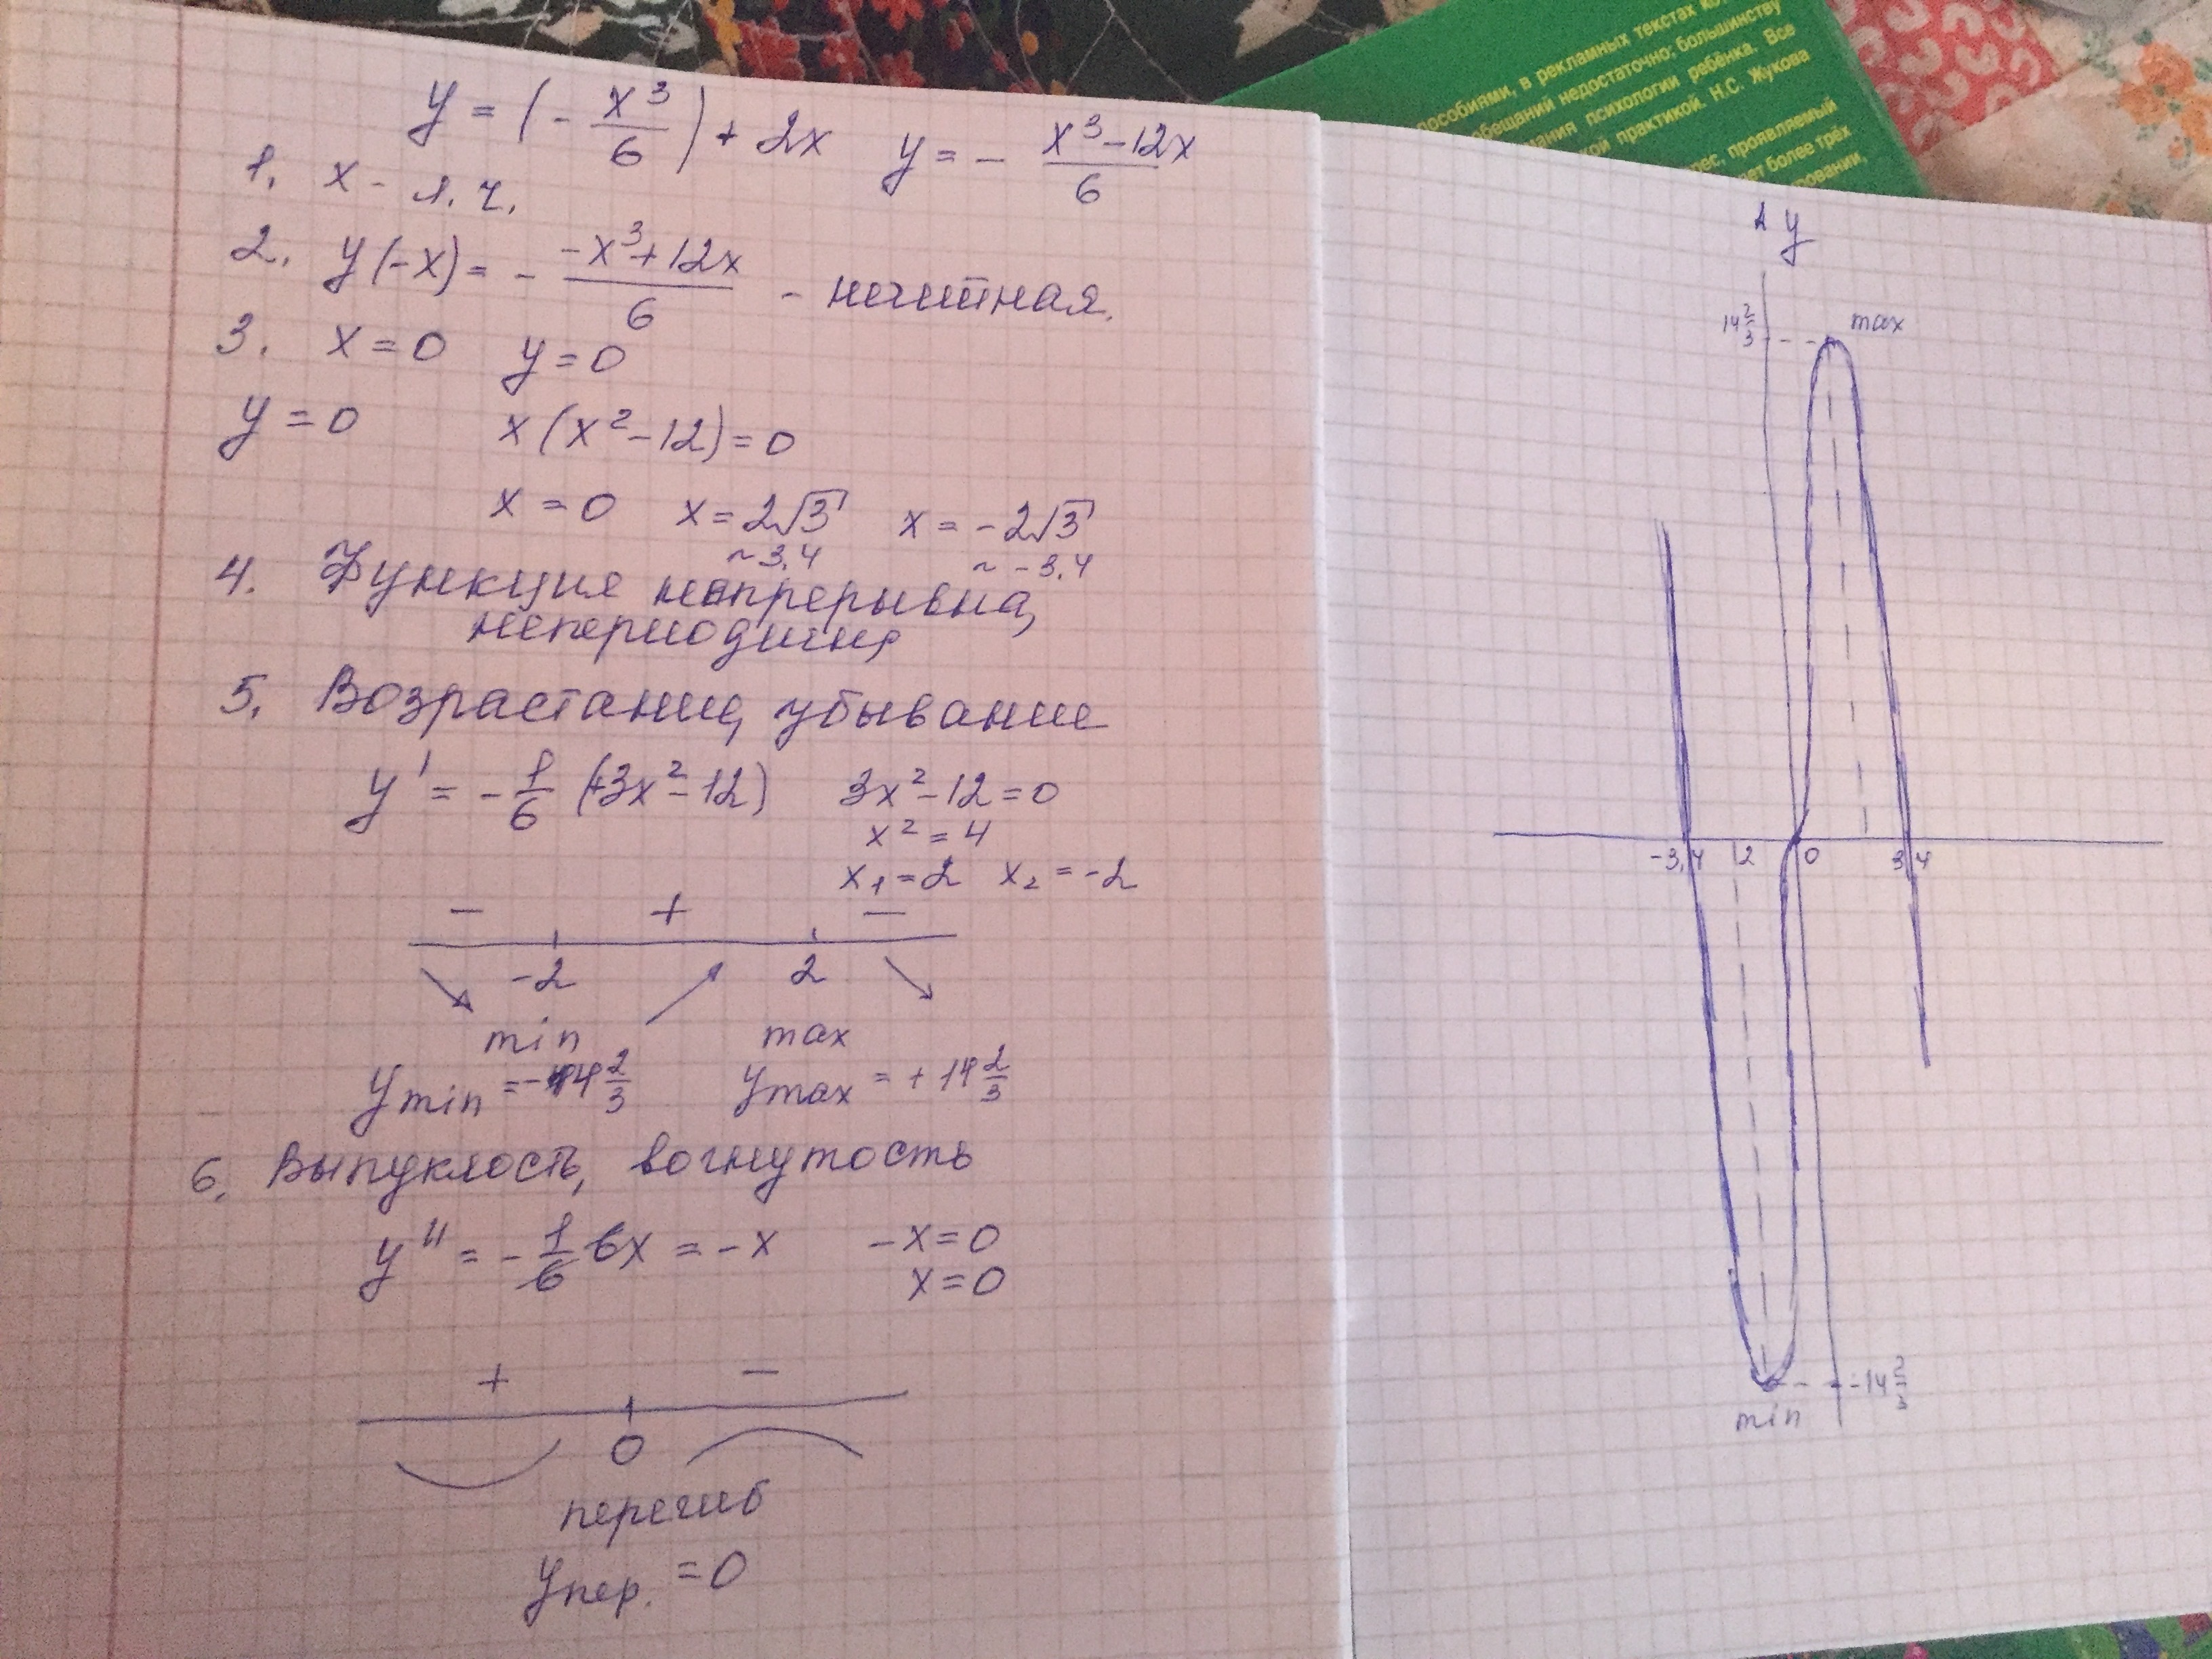 y = (- x³/6) + 2x   y = - (x³-12x)/6
1. x - л.ч.
2. y(-x) = - (-x³+12x)/6 - нечетная.
3. x=0   y=0
y=0   x(x²-12)=0
x=0   x=2√3   x=-2√3
~3,4   ~-3,4
4. Функция непрерывна,
непериодична
5. Возрастание, убывание
y' = -1/6 (+3x²-12)   3x²-12=0
x²=4
x₁=2   x₂=-2
−   +   −
-2   2
min   max
y min = -14 2/3   y max = +14 2/3
6. Выпуклость, вогнутость
y'' = -1/6 6x = -x   -x=0
x=0
+   −
0
перегиб
y пер. = 0
пособиями, в рекламных текстах
обещаний недостаточно; большинству
психологии ребёнка. Все
практикой. Н.С. Жукова
проявляемый
более трёх
y
14 2/3   max
-3,4   2   0   3,4
-14 2/3
min